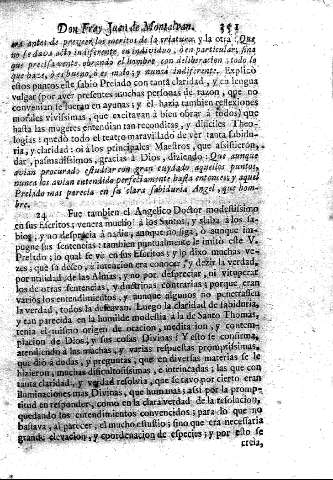 Don Fray Juan de Montalvan. 351
era antes de preveer los meritos de la criatura: y la otra: Que
no se dava acto indiferente, en individuo, ò en particular; sino
que precisamente obrando el hombre con deliberacion; todo lo
que haze, ò es bueno, ò es malo; y nunca indiferente. Explicò
estos puntos este sabio Prelado con tanta claridad, y en lengua
vulgar (por aver presentes muchas personas de razon, que no
convenia se fueran en ayunas; y èl hazia tambien reflexiones
morales vivissimas, que excitavan à bien obrar à todos) que
hasta las mugeres entendian tan reconditas, y dificiles Theo-
logias: quedò todo el teatro maravillado de ver tanta sabidu-
ria, y claridad: oì à los principales Maestros, que assistieron,
dar, pasmadissimos, gracias à Dios, diziendo: Que aunque
avian procurado estudiar con gran cuydado aquellos puntos,
nunca los avian entendido perfectamente hasta entonces; y aquel
Prelado mas parecia en su clara sabiduria Angel, que hom-
bre.
24 Fue tambien el Angelico Doctor modestissimo
en sus Escritos; venera mucho à los Santos, y alaba à los sa-
bios, y no desprecia à nadie, aunque no siga, ò aunque im-
pugne sus sentencias: tambien puntualmente le imitò este V.
Prelado; lo qual se vè en sus Escritos, y lo dixo muchas ve-
zes; que sa deseo, y intencion era conocer, y dezir la verdad,
por utilidad de las Almas, y no por despreciar, ni vituperar
los de otras sentencias, y doctrinas contrarias; porque eran
varios los entendimientos, y aunque algunos no penetrassen
la verdad, todos la deseavan. Luego la claridad de sabiduria,
y tan parecida en la humilde modestia à la de Santo Thomàs,
tenia el mismo origen de oracion, meditacion, y contem-
placion de Dios, y sus cosas Divinas: Y esto se confirma,
atendiendo à las muchas, y varias respuestas promptissimas,
que diò à dudas, y preguntas, que en diversas materias se le
hizieron, muchas dificultosissimas, è intrincadas; las que con
tanta claridad, y verdad resolvia, que se tuvo por cierto eran
iluminaciones mas Divinas, que humanas; assi por la promp-
titud en responder, como en la clara verdad de la resolucion,
quedando los entendimientos convencidos; para lo que no
bastava, al parecer, el mucho estudio; sino que era necessaria
grande elevacion, y coordenacion de especies; y por esto se
creìa,